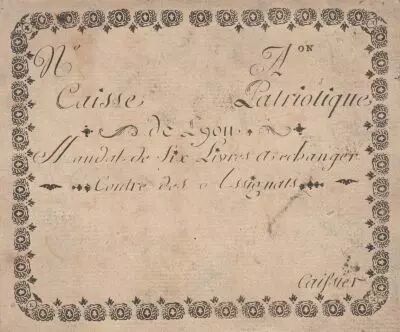 N° A^ON
Caisse Patriotique
de Lyon
Mandat de Six Livres à échanger
Contre des Assignats
Caissier